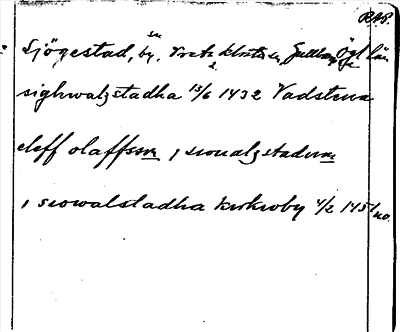 RAP.
Sjögestad, by, Vreta klosters sn, Ögl län
sighwalzstadha 15/6 1432 Vadstena
eleff olaffson, i sioualzstadum
i siowalstadha kirkioby 4/2 1451 no.